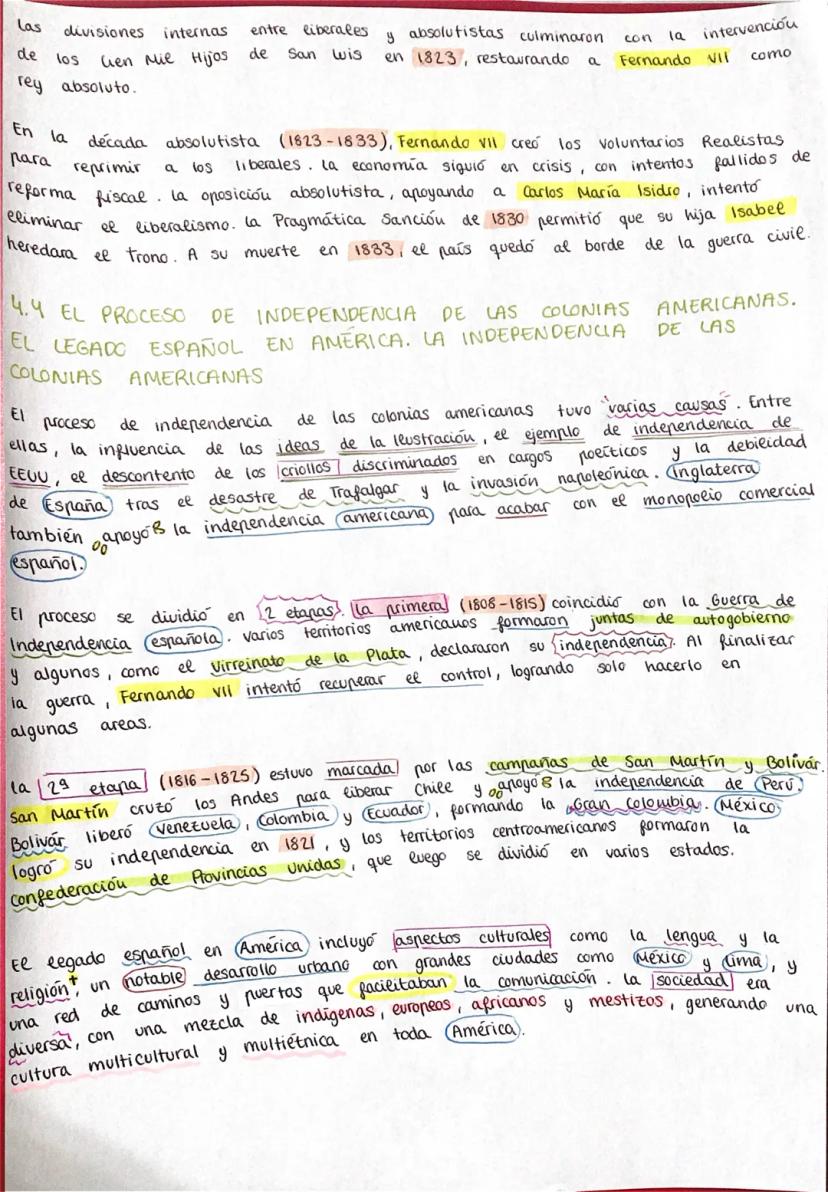 las divisiones internas entre liberales y absolutistas culminaron con la intervención
de los Cien Mil Hijos de San Luis en 1823, restaurando a Fernando VII como
rey absoluto.
En la década absolutista (1823-1833), Fernando VII creó los Voluntarios Realistas
para reprimir a los liberales. La economía siguió en crisis, con intentos fallidos de
reforma fiscal. La oposición absolutista, apoyando a Carlos María Isidro, intentó
eliminar el liberalismo. La Pragmática Sanción de 1830 permitió que su hija Isabel
heredara el trono. A su muerte en 1833, el país quedó al borde de la guerra civil.
4.4 EL PROCESO DE INDEPENDENCIA DE LAS COLONIAS AMERICANAS.
EL LEGADO ESPAÑOL EN AMÉRICA. LA INDEPENDENCIA DE LAS
COLONIAS AMERICANAS
El proceso de independencia de las colonias americanas tuvo varias causas. Entre
ellas, la influencia de las ideas de la Ilustración, el ejemplo de independencia de
EEUU, el descontento de los criollos discriminados en cargos políticos y la debilidad
de España tras el desastre de Trafalgar y la invasión napoleónica. Inglaterra
también apoyó la independencia americana para acabar con el monopolio comercial
español.
El proceso se dividió en 2 etapas. La primera (1808-1815) coincidió con la Guerra de
Independencia española. Varios territorios americanos formaron juntas de autogobierno
y algunos, como el Virreinato de la Plata, declararon su independencia. Al finalizar
la guerra, Fernando VII intentó recuperar el control, logrando solo hacerlo en
algunas areas.
La 2ª etapa (1816-1825) estuvo marcada por las campañas de San Martín y Bolívar.
San Martín cruzó los Andes para liberar Chile y apoyó la independencia de Perú.
Bolívar liberó Venezuela, Colombia y Ecuador, formando la Gran Colombia. México
logró su independencia en 1821, y los territorios centroamericanos formaron la
Confederación de Provincias Unidas, que luego se dividió en varios estados.
El legado español en América incluyó aspectos culturales como la lengua y la
religión, un notable desarrollo urbano con grandes ciudades como México y Lima, y
una red de caminos y puertos que facilitaban la comunicación. La sociedad era
diversa, con una mezcla de indígenas, europeos, africanos y mestizos, generando una
cultura multicultural y multiétnica en toda América.